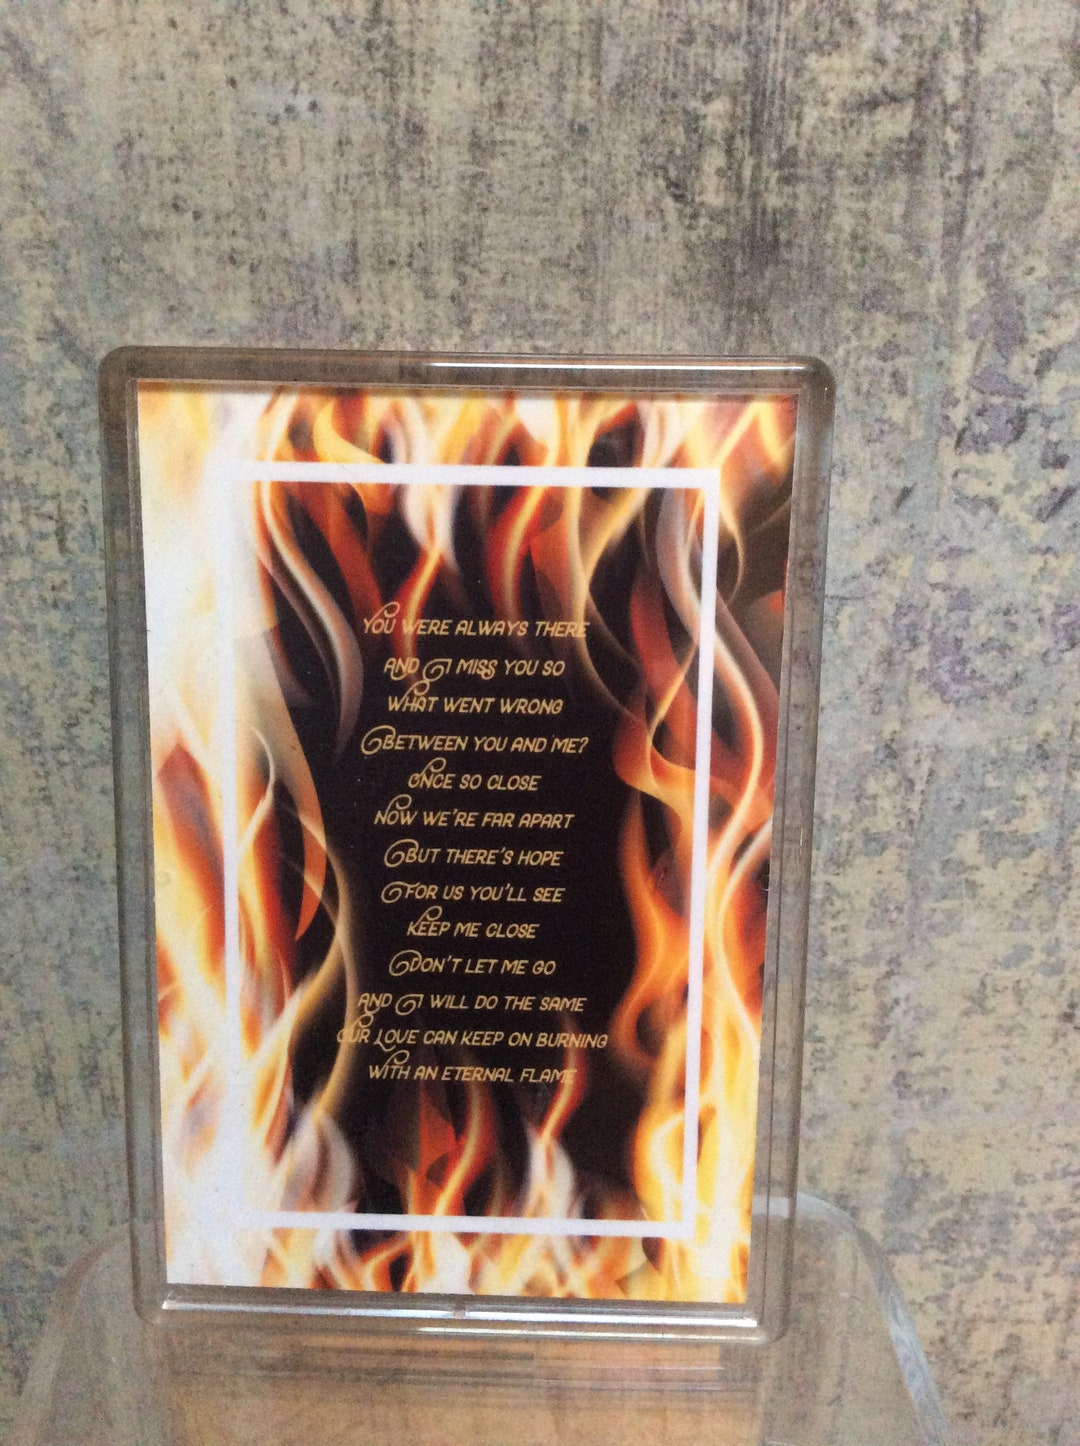 YOU WERE ALWAYS THERE
AND I MISS YOU SO
WHAT WENT WRONG
BETWEEN YOU AND ME?
ONCE SO CLOSE
NOW WE'RE FAR APART
BUT THERE'S HOPE
FOR US YOU'LL SEE
KEEP ME CLOSE
DON'T LET ME GO
AND I WILL DO THE SAME
OUR LOVE CAN KEEP ON BURNING
WITH AN ETERNAL FLAME